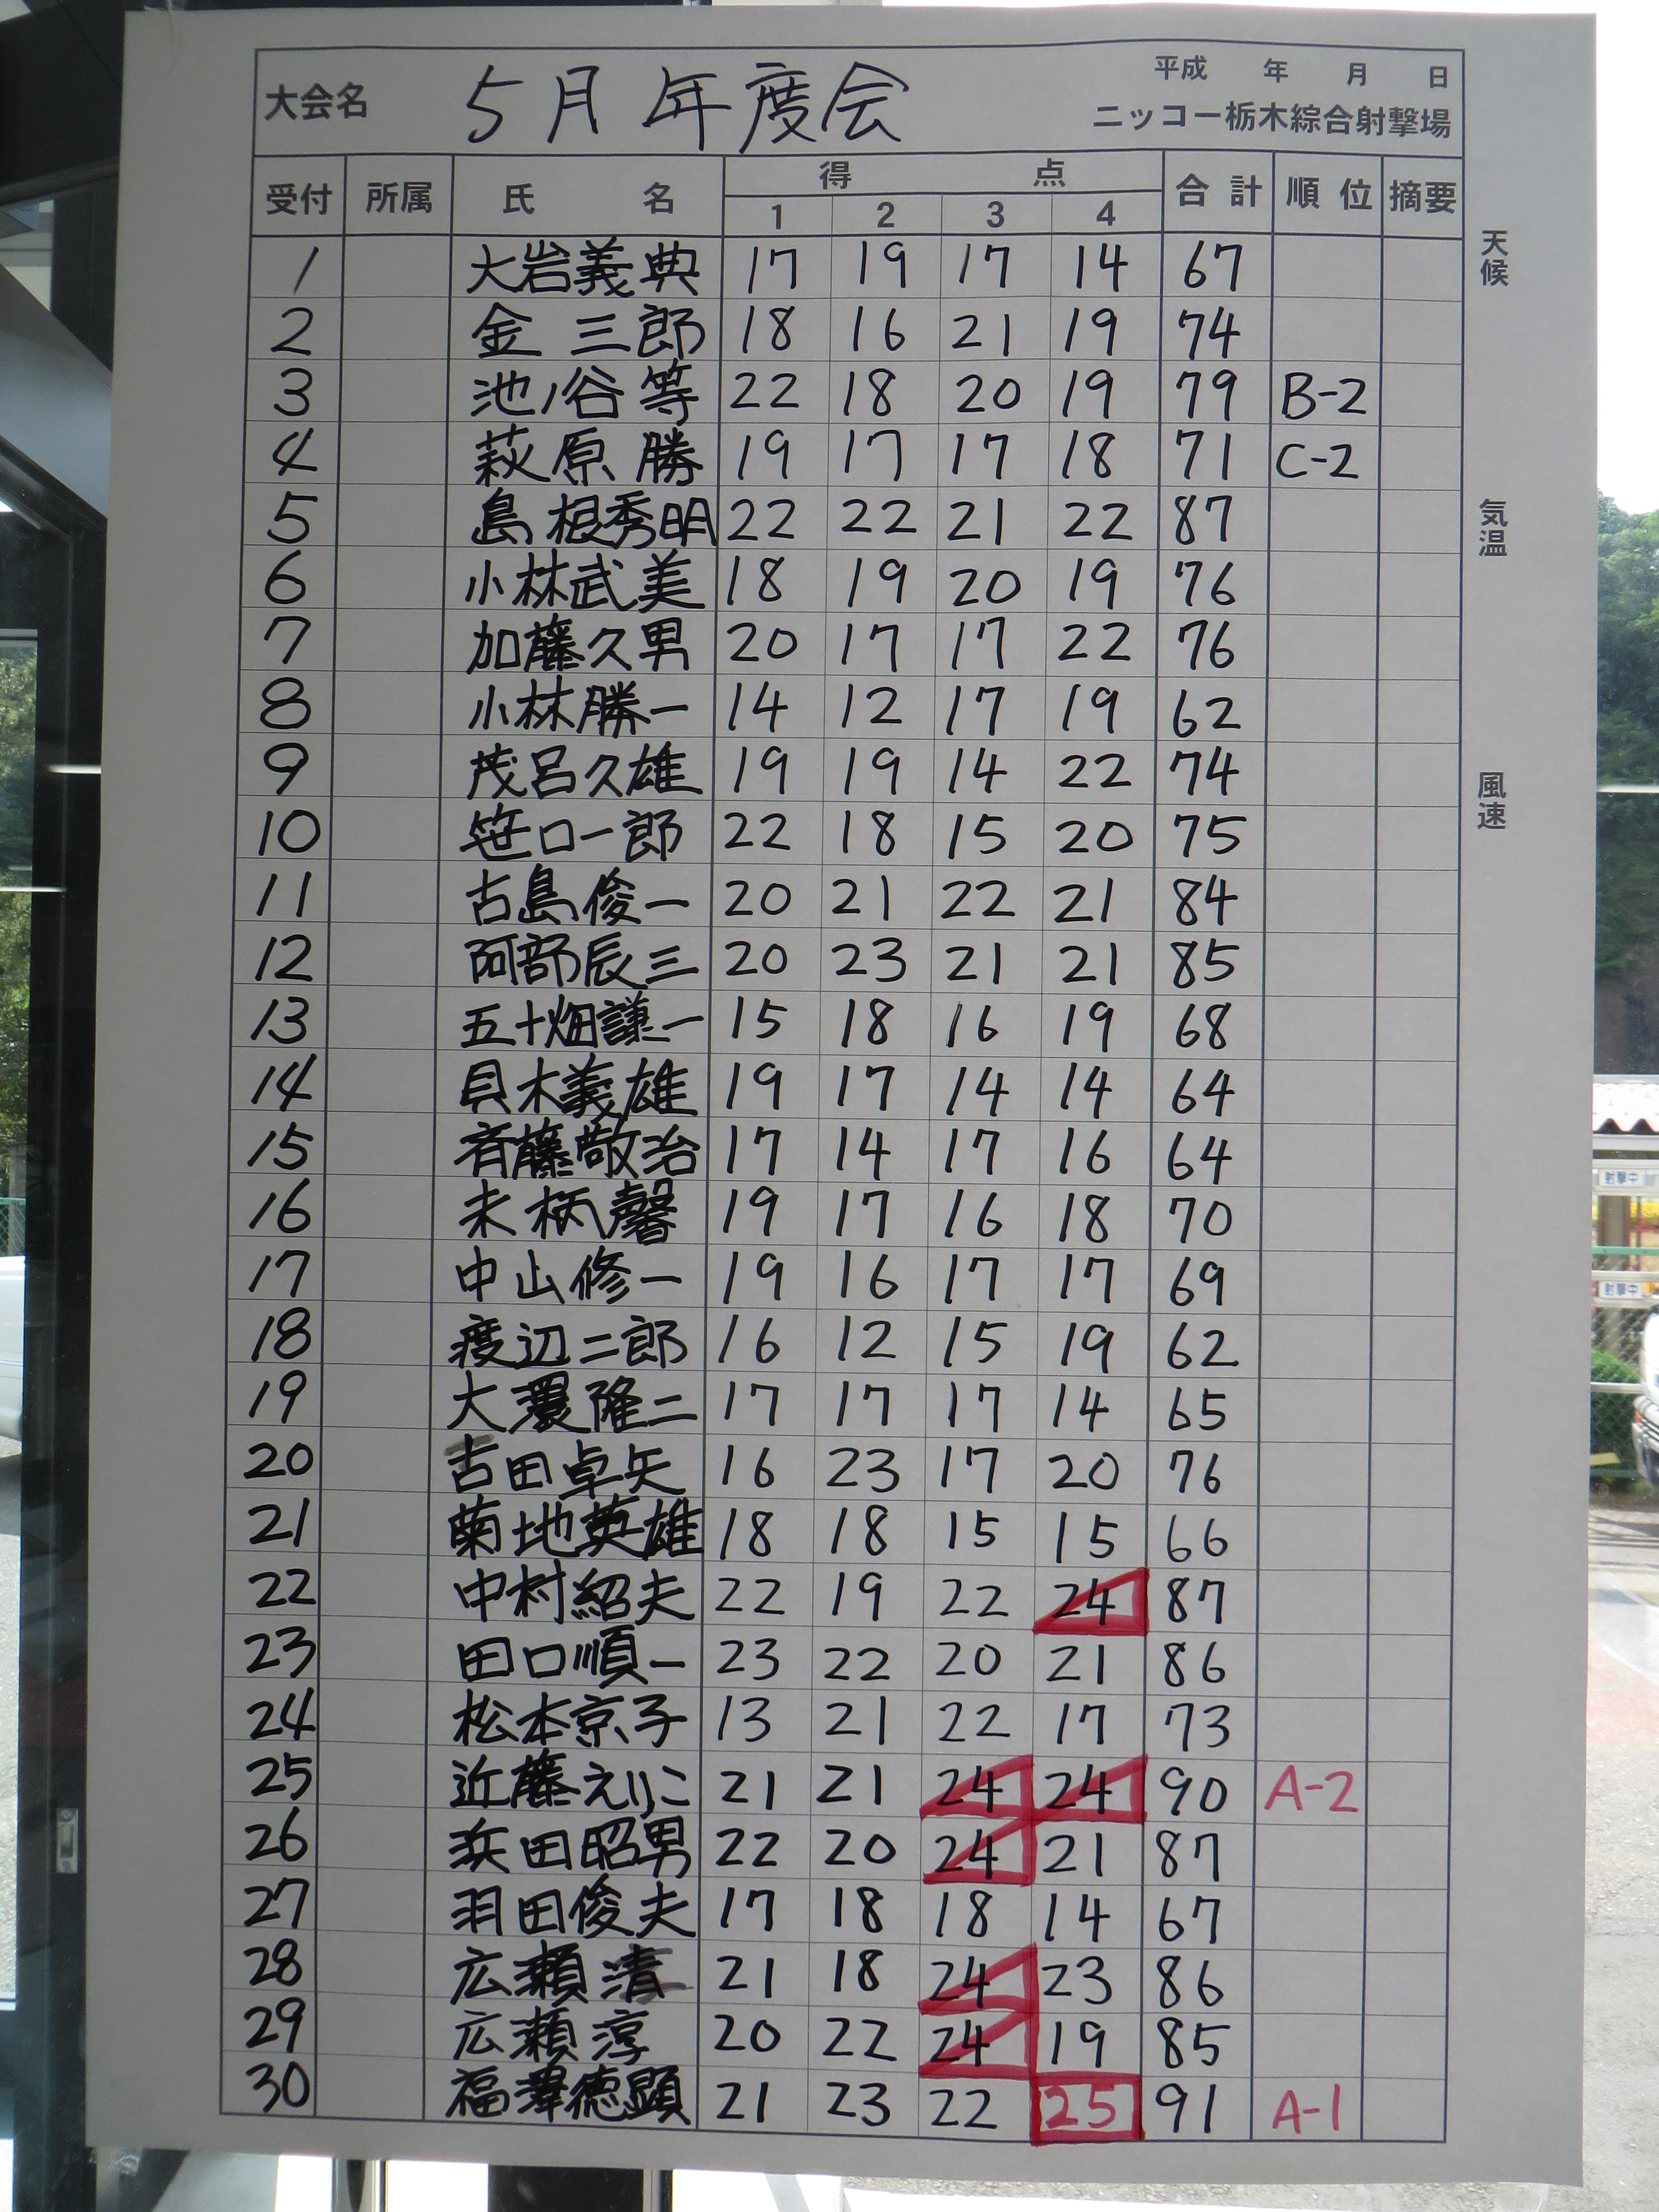 平成 年 月 日
大会名 5月年度会
ニッコー栃木綜合射撃場
受付 所属 氏 名 得 点 合計 順位 摘要
1 2 3 4
1 大岩義典 17 19 17 14 67
2 金 三郎 18 16 21 19 74
3 池ノ谷 等 22 18 20 19 79 B-2
4 萩原 勝 19 17 17 18 71 C-2
5 島根秀明 22 22 21 22 87
6 小林武美 18 19 20 19 76
7 加藤久男 20 17 17 22 76
8 小林勝一 14 12 17 19 62
9 茂呂久雄 19 19 14 22 74
10 笹口一郎 22 18 15 20 75
11 古島俊一 20 21 22 21 84
12 阿部辰三 20 23 21 21 85
13 五十畑謙一 15 18 16 19 68
14 貝木義雄 19 17 14 14 64
15 斉藤敬治 17 14 17 16 64
16 末柄馨 19 17 16 18 70
17 中山修一 19 16 17 17 69
18 渡辺二郎 16 12 15 19 62
19 大濃隆二 17 17 17 14 65
20 吉田卓矢 16 23 17 20 76
21 菊地英雄 18 18 15 15 66
22 中村紹夫 22 19 22 24 87
23 田口順一 23 22 20 21 86
24 松本京子 13 21 22 17 73
25 近藤えりこ 21 21 24 24 90 A-2
26 浜田昭男 22 20 24 21 87
27 羽田俊夫 17 18 18 14 67
28 広瀬清 21 18 24 23 86
29 広瀬淳 20 22 24 19 85
30 福澤徳顕 21 23 22 25 91 A-1
天候
気温
風速
射撃中
射撃中